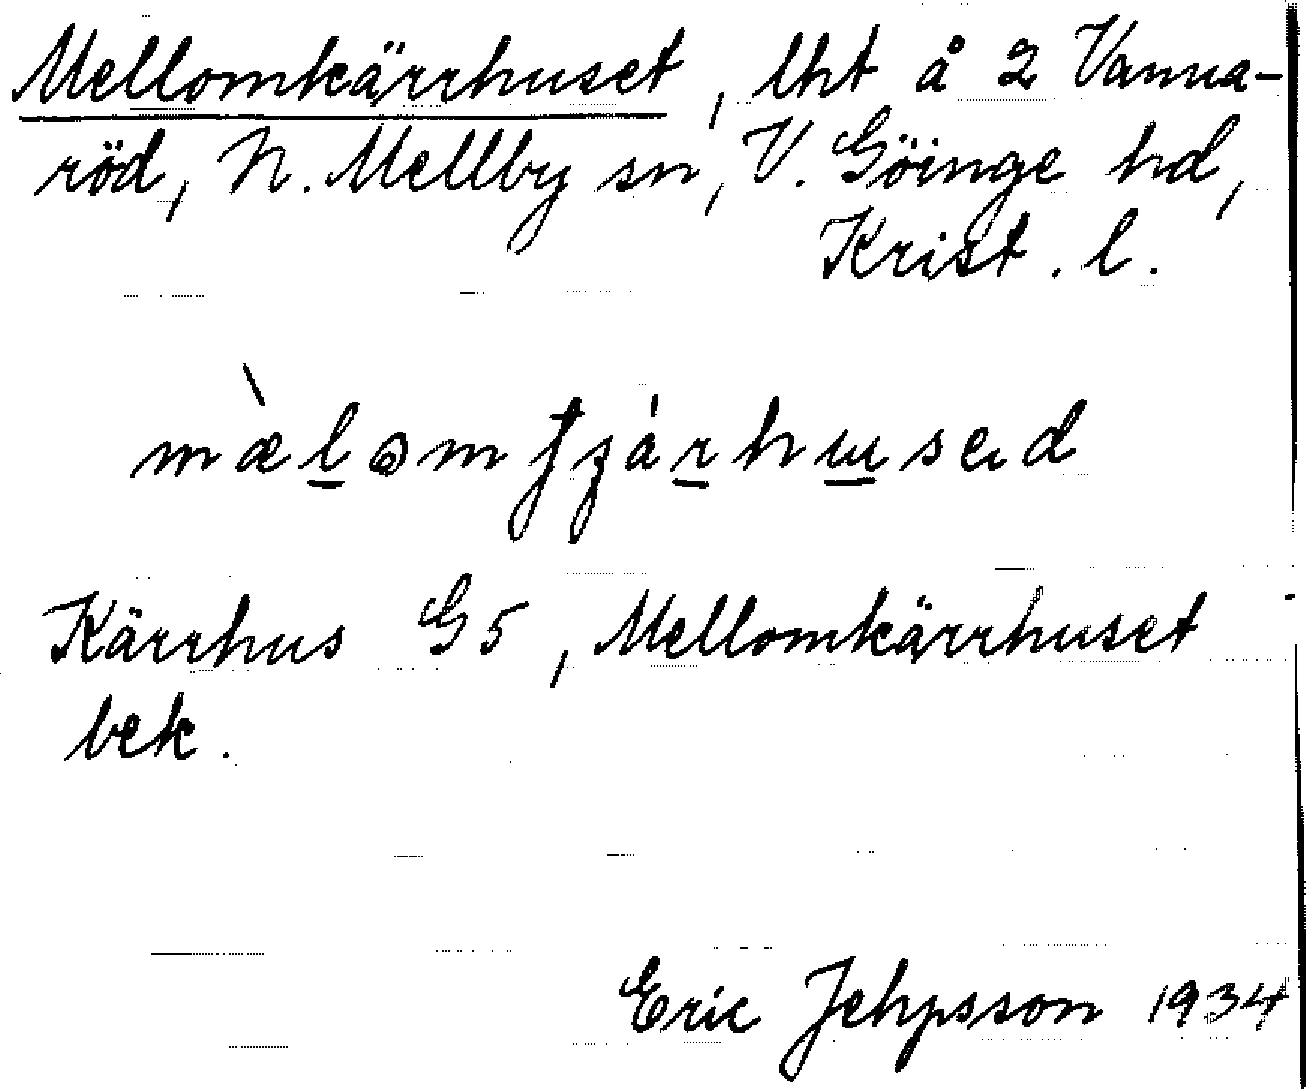 Mellomkärrhuset, lht å 2 Vanna-
röd, N. Mellby sn, V. Göinge hd,
Krist. l.
Kärrhus G5, Mellomkärrhuset
bek.
Eric Jehpsson 1934